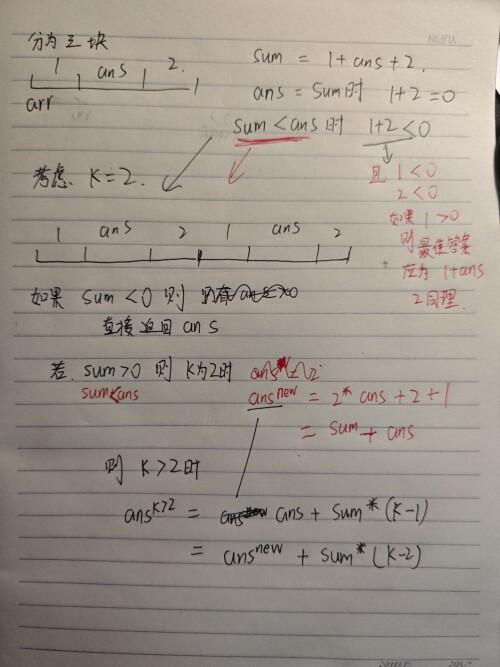 分为三块
1 ans 2
arr
sum = 1+ans+2.
ans = sum时 1+2=0
sum<ans时 1+2<0
且 1<0
2<0
如果 1>0
则最佳答案
应为 1+ans
2同理.
考虑 K=2.
1 ans 2 1 ans 2
如果 sum<0 则
直接返回 ans
若 sum>0 则 K为2时
sum<ans
ans^new = 2*ans+2+1
= sum+ans
则 K>2时
ans^K>2 = ans + sum*(K-1)
= ans^new + sum*(K-2)